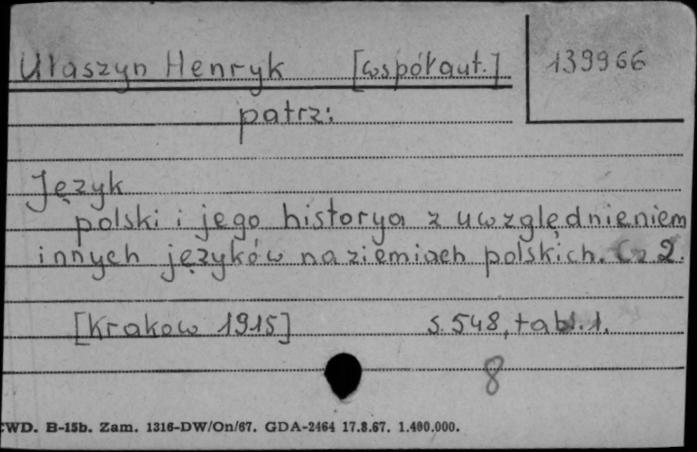 Ułaszyn Henryk [współaut.] 139966
patrz:
Język
polski i jego historya z uwzględnieniem
innych języków na ziemiach polskich. Cz 2.
[Krakow 1915] s. 548, tabl. 1.
8
CWD. B-15b. Zam. 1316-DW/On/67. GDA-2464 17.8.67. 1.400.000.